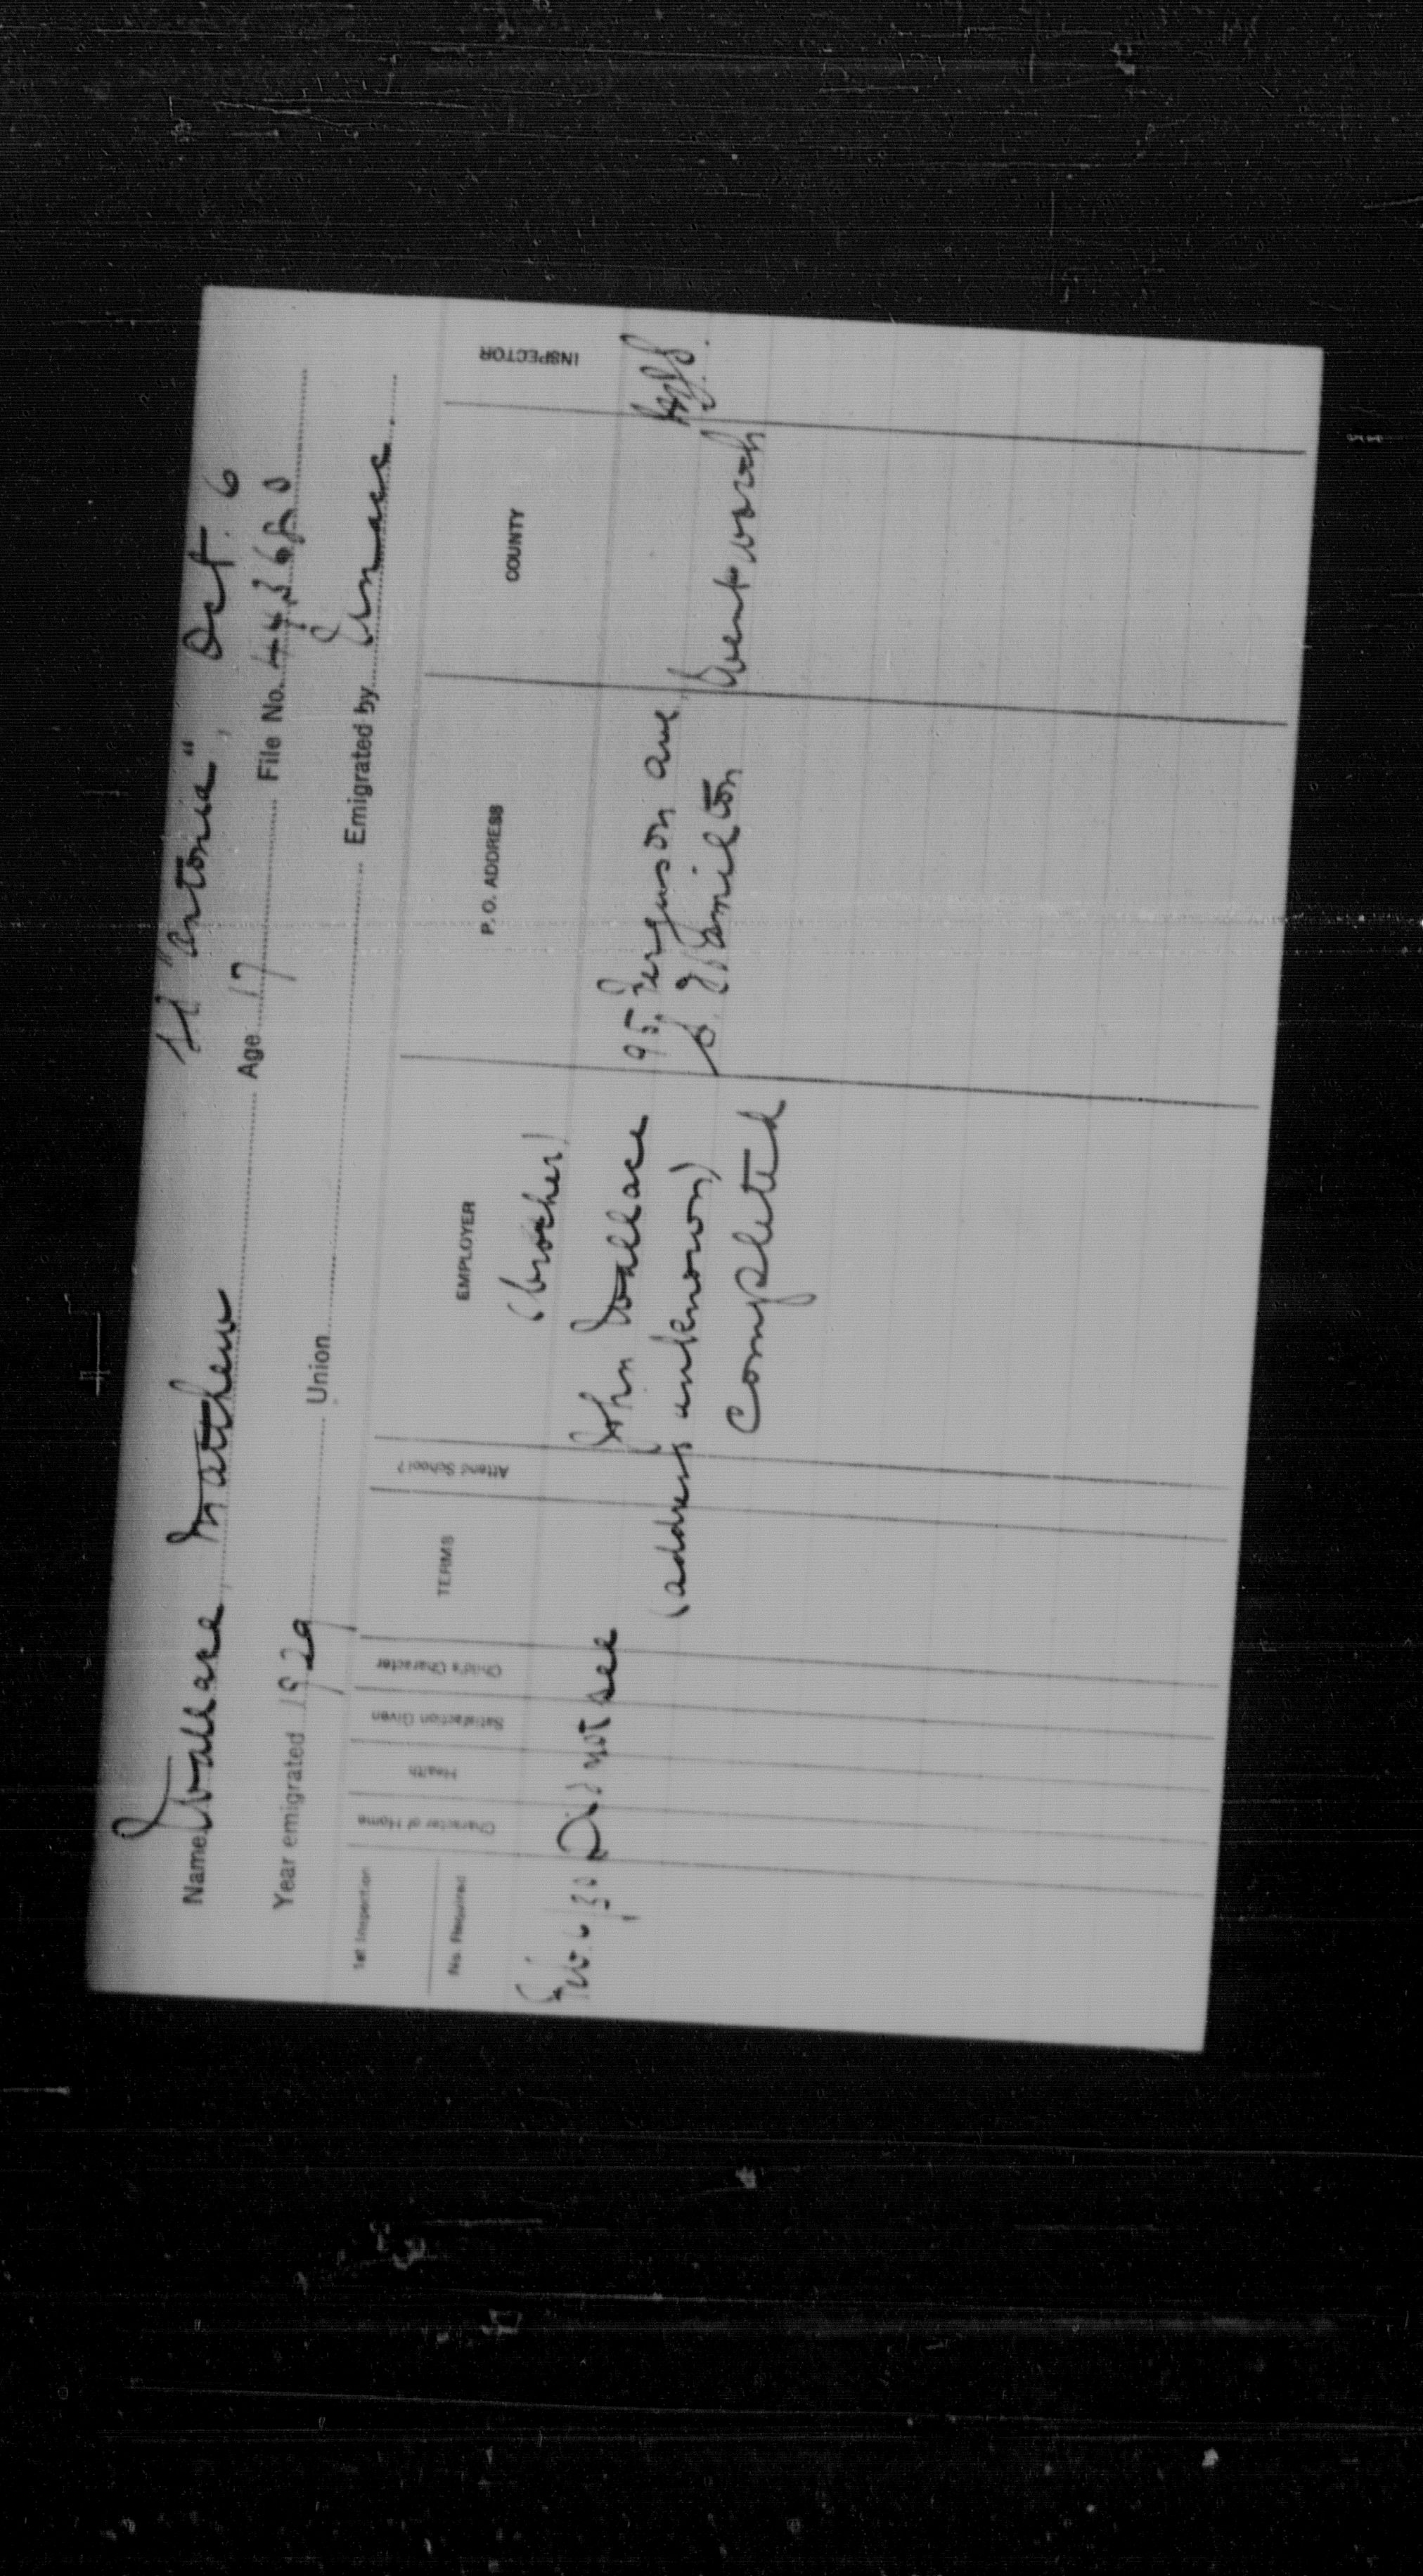 "Antonia", Oct. 6
Name Wallace, Matthew Age 17 File No.
Year emigrated 1929 Union Emigrated by
1st Inspection
No. Required
Character of Home
Health
Satisfaction Given
Child's Character
TERMS
Attend School?
EMPLOYER
P. O. ADDRESS
COUNTY
INSPECTOR
(brother)
Feb 6/30 Did not see John Wallace 95 Ferguson ave,
(address unknown) S. Hamilton Wentworth
Completed